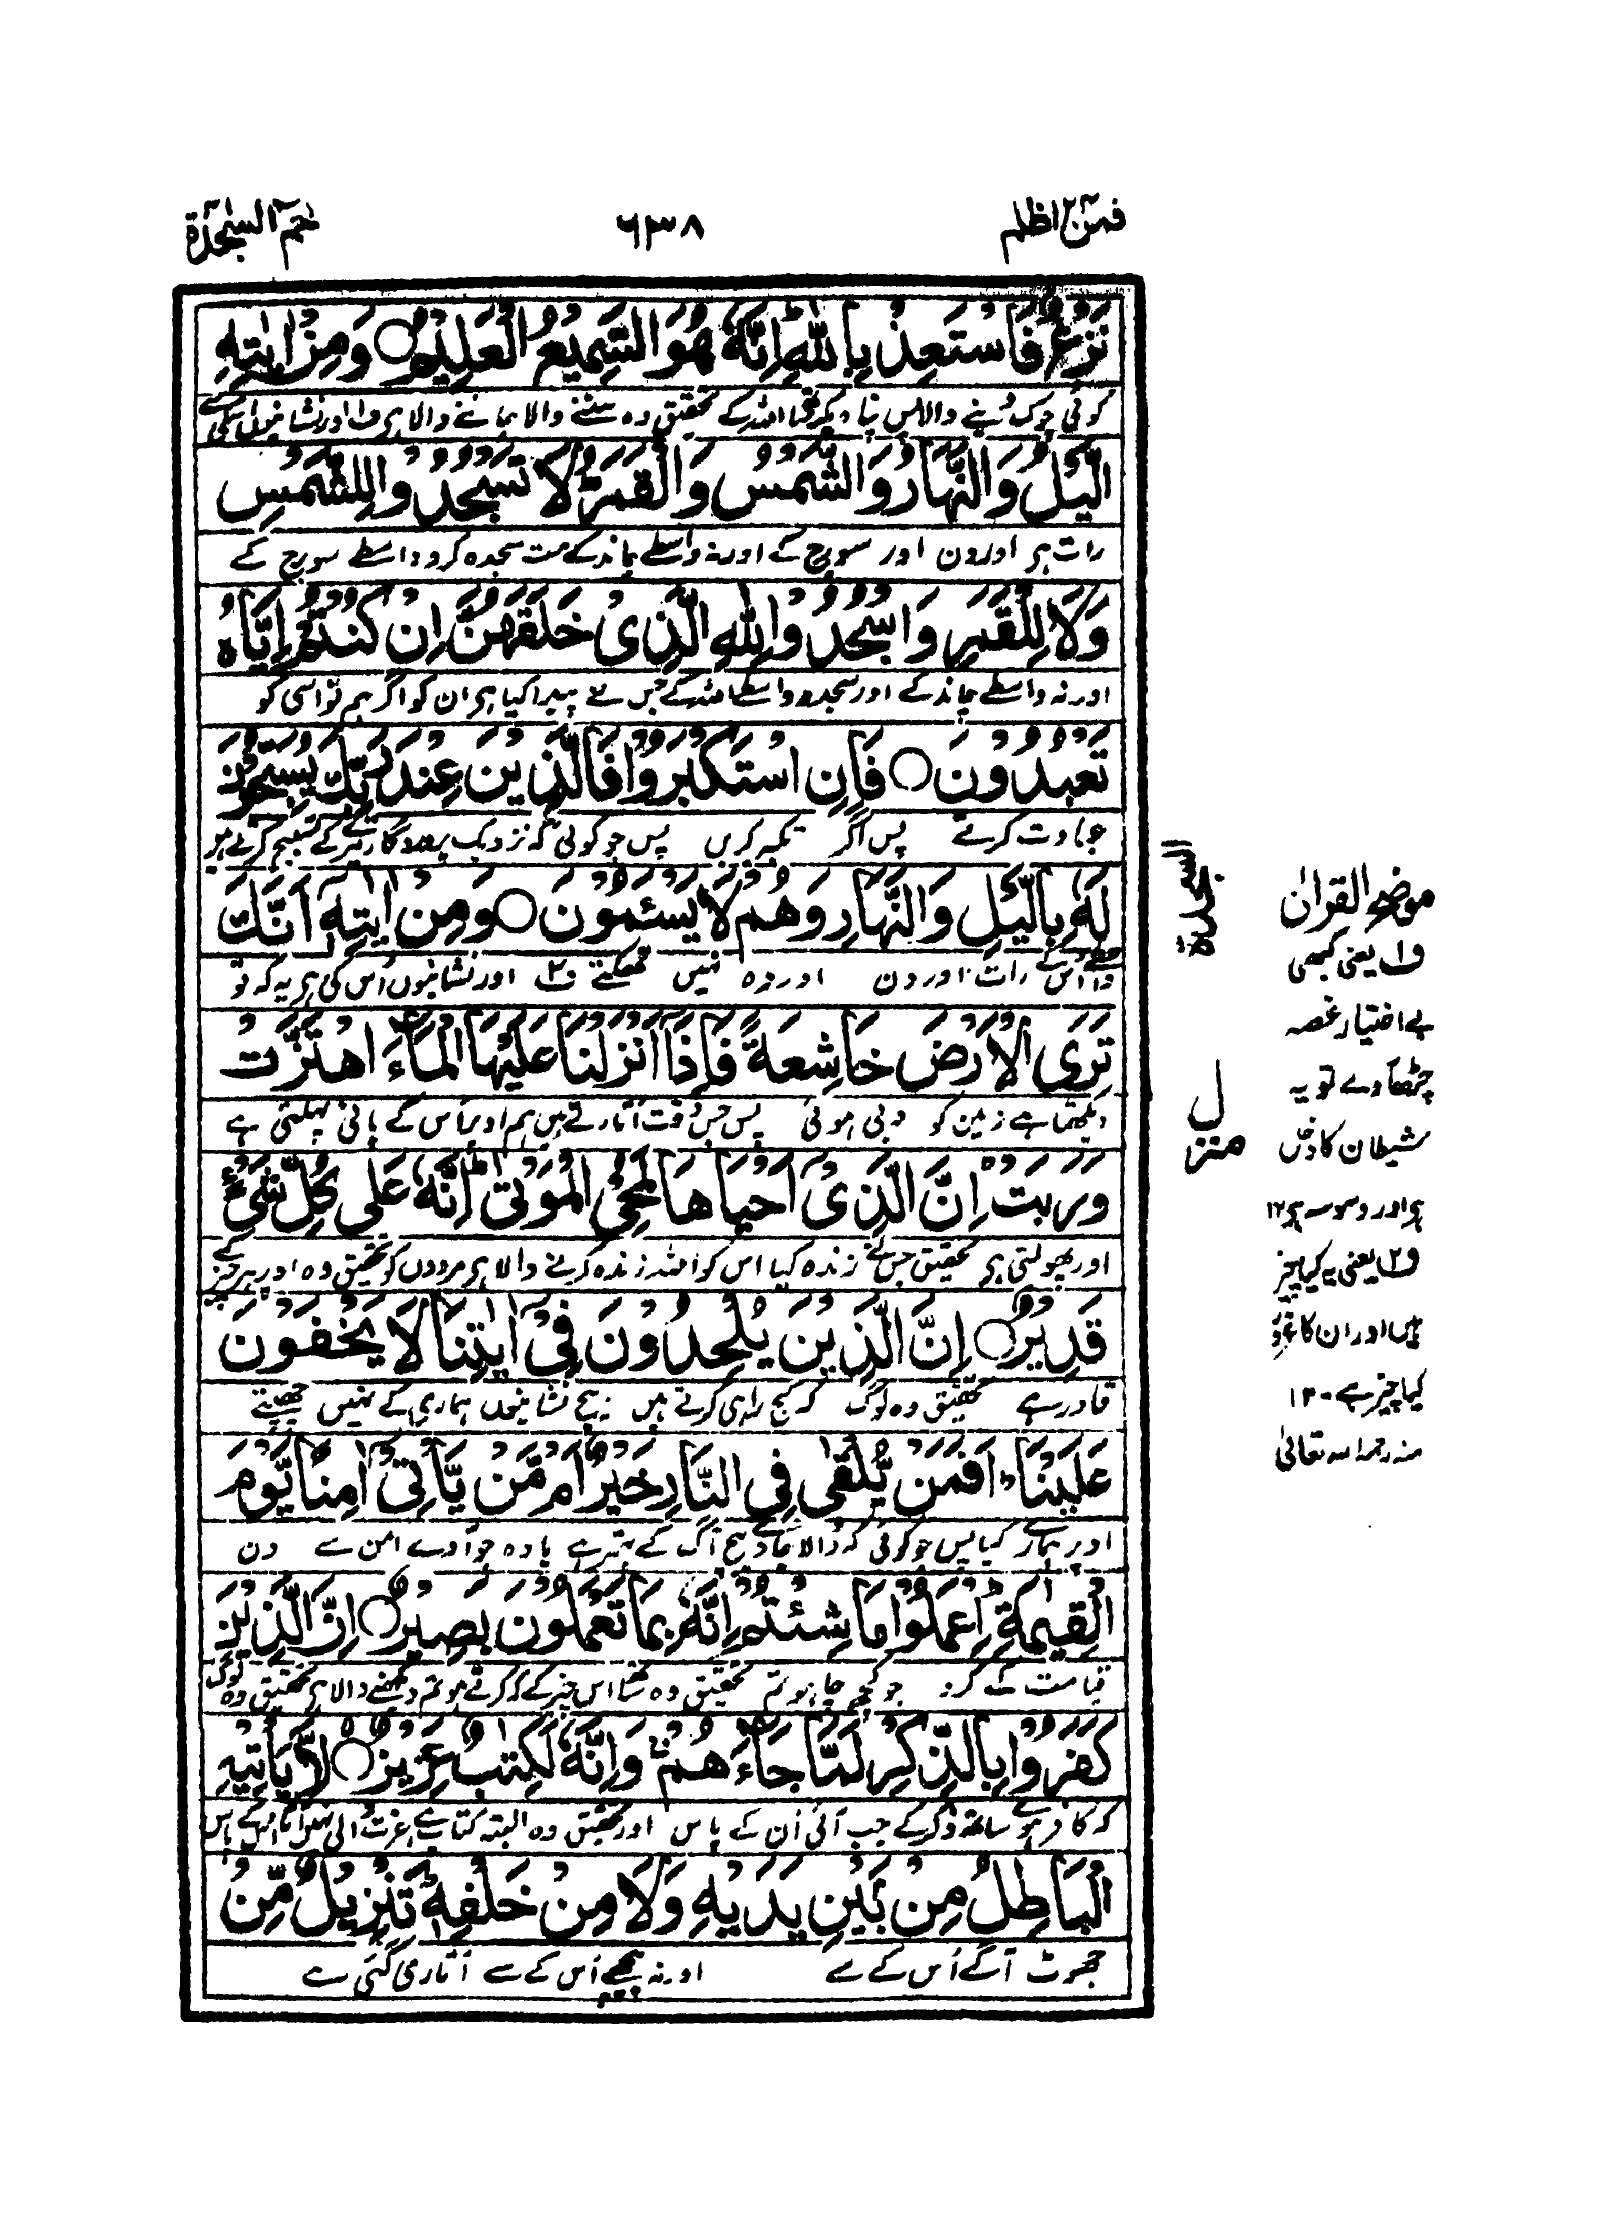 فمن اظلم ٢٤
٦٣٨
حٰمٓ السجدة ٤١
نَزْغٌ فَاسْتَعِذْ بِاللّٰهِ اِنَّهٗ هُوَ السَّمِيْعُ الْعَلِيْمُ ○ وَمِنْ اٰيٰتِهِ
کوئی چوک دینے والا پس پناہ پکڑ ساتھ اللہ کے تحقیق وہ سننے والا جاننے والا ہی ف۱ اور نشانیوں اسکی سے
الَّيْلُ وَالنَّهَارُ وَالشَّمْسُ وَالْقَمَرُ لَا تَسْجُدُوْا لِلشَّمْسِ
رات ہی اور دن اور سورج کے اور نہ واسطے چاند کے مت سجدہ کرو واسطے سورج کے
وَلَا لِلْقَمَرِ وَاسْجُدُوْا لِلّٰهِ الَّذِىْ خَلَقَهُنَّ اِنْ كُنْتُمْ اِيَّاهُ
اور نہ واسطے چاند کے اور سجدہ واسطے اللہ کے جس نے پیدا کیا ہی ان کو اگر ہو تم اسی کو
تَعْبُدُوْنَ ○ فَاِنِ اسْتَكْبَرُوْا فَالَّذِيْنَ عِنْدَ رَبِّكَ يُسَبِّحُوْنَ
عبادت کرتے پس اگر تکبر کریں پس جو کوئی کہ نزدیک پروردگار تیرے کے تسبیح کرتے ہیں
لَهٗ بِالَّيْلِ وَالنَّهَارِ وَهُمْ لَا يَسْـَٔمُوْنَ ○ وَمِنْ اٰيٰتِهٖ اَنَّكَ
واسطے اس کے رات اور دن اور وہ نہیں تھکتے ف۲ اور نشانیوں اُس کی ہی یہ کہ تو
تَرَى الْاَرْضَ خَاشِعَةً فَاِذَا اَنْزَلْنَا عَلَيْهَا الْمَآءَ اهْتَزَّتْ
دیکھتا ہے زمین کو دبی ہوئی پس جس وقت اُتارتے ہیں ہم اوپر اُس کے پانی پہلتی ہے
وَرَبَتْ اِنَّ الَّذِىْ اَحْيَاهَا لَمُحْىِ الْمَوْتٰى اِنَّهٗ عَلٰى كُلِّ شَىْءٍ
اور پھولتی ہی تحقیق جس نے زندہ کیا اس کو اللہ زندہ کرنے والا ہی مردوں کو تحقیق وہ اوپر ہر چیز کے
قَدِيْرٌ ○ اِنَّ الَّذِيْنَ يُلْحِدُوْنَ فِىْ اٰيٰتِنَا لَا يَخْفَوْنَ
قادر ہے تحقیق وہ لوگ کہ کج راہی کرتے ہیں بیچ نشانیوں ہماری کے نہیں چھپتے
عَلَيْنَا اَفَمَنْ يُّلْقٰى فِى النَّارِ خَيْرٌ اَمْ مَّنْ يَّاْتِىْ اٰمِنًا يَّوْمَ
اوپر ہمارے کیا پس جو کوئی کہ ڈالا جاوے بیچ آگ کے بہتر ہے یا وہ جو آوے امن سے دن
الْقِيٰمَةِ اِعْمَلُوْا مَا شِئْتُمْ اِنَّهٗ بِمَا تَعْمَلُوْنَ بَصِيْرٌ ○ اِنَّ الَّذِيْنَ
قیامت کے کرو جو کچھ چاہو تم تحقیق وہ ساتھ اس چیز کے کہ کرتے ہو تم دیکھنے والا ہی تحقیق وہ لوگ
كَفَرُوْا بِالذِّكْرِ لَمَّا جَآءَهُمْ وَاِنَّهٗ لَكِتٰبٌ عَزِيْزٌ ○ لَّا يَاْتِيْهِ
کہ کافر ہوئے ساتھ ذکر کے جب آئی اُن کے پاس اور تحقیق وہ البتہ کتاب ہے عزت والی نہیں آتا اسکے پاس
الْبَاطِلُ مِنْ بَيْنِ يَدَيْهِ وَلَا مِنْ خَلْفِهٖ تَنْزِيْلٌ مِّنْ
جھوٹ آگے اُس کے سے اور نہ پیچھے اُس کے سے اُتاری گئی ہے
السجدة
منزل
موضح القران
ف۱ یعنی کبھی
بے اختیار غصہ
چڑھا دے تو یہ
شیطان کا دخل
ہی اور وسوسہ ہی ۱۲
ف۲ یعنی یہ کیا چیز
ہیں اور ان کا غرور
کیا چیز ہے ۱۲
منہ رحمہ اللہ تعالیٰ